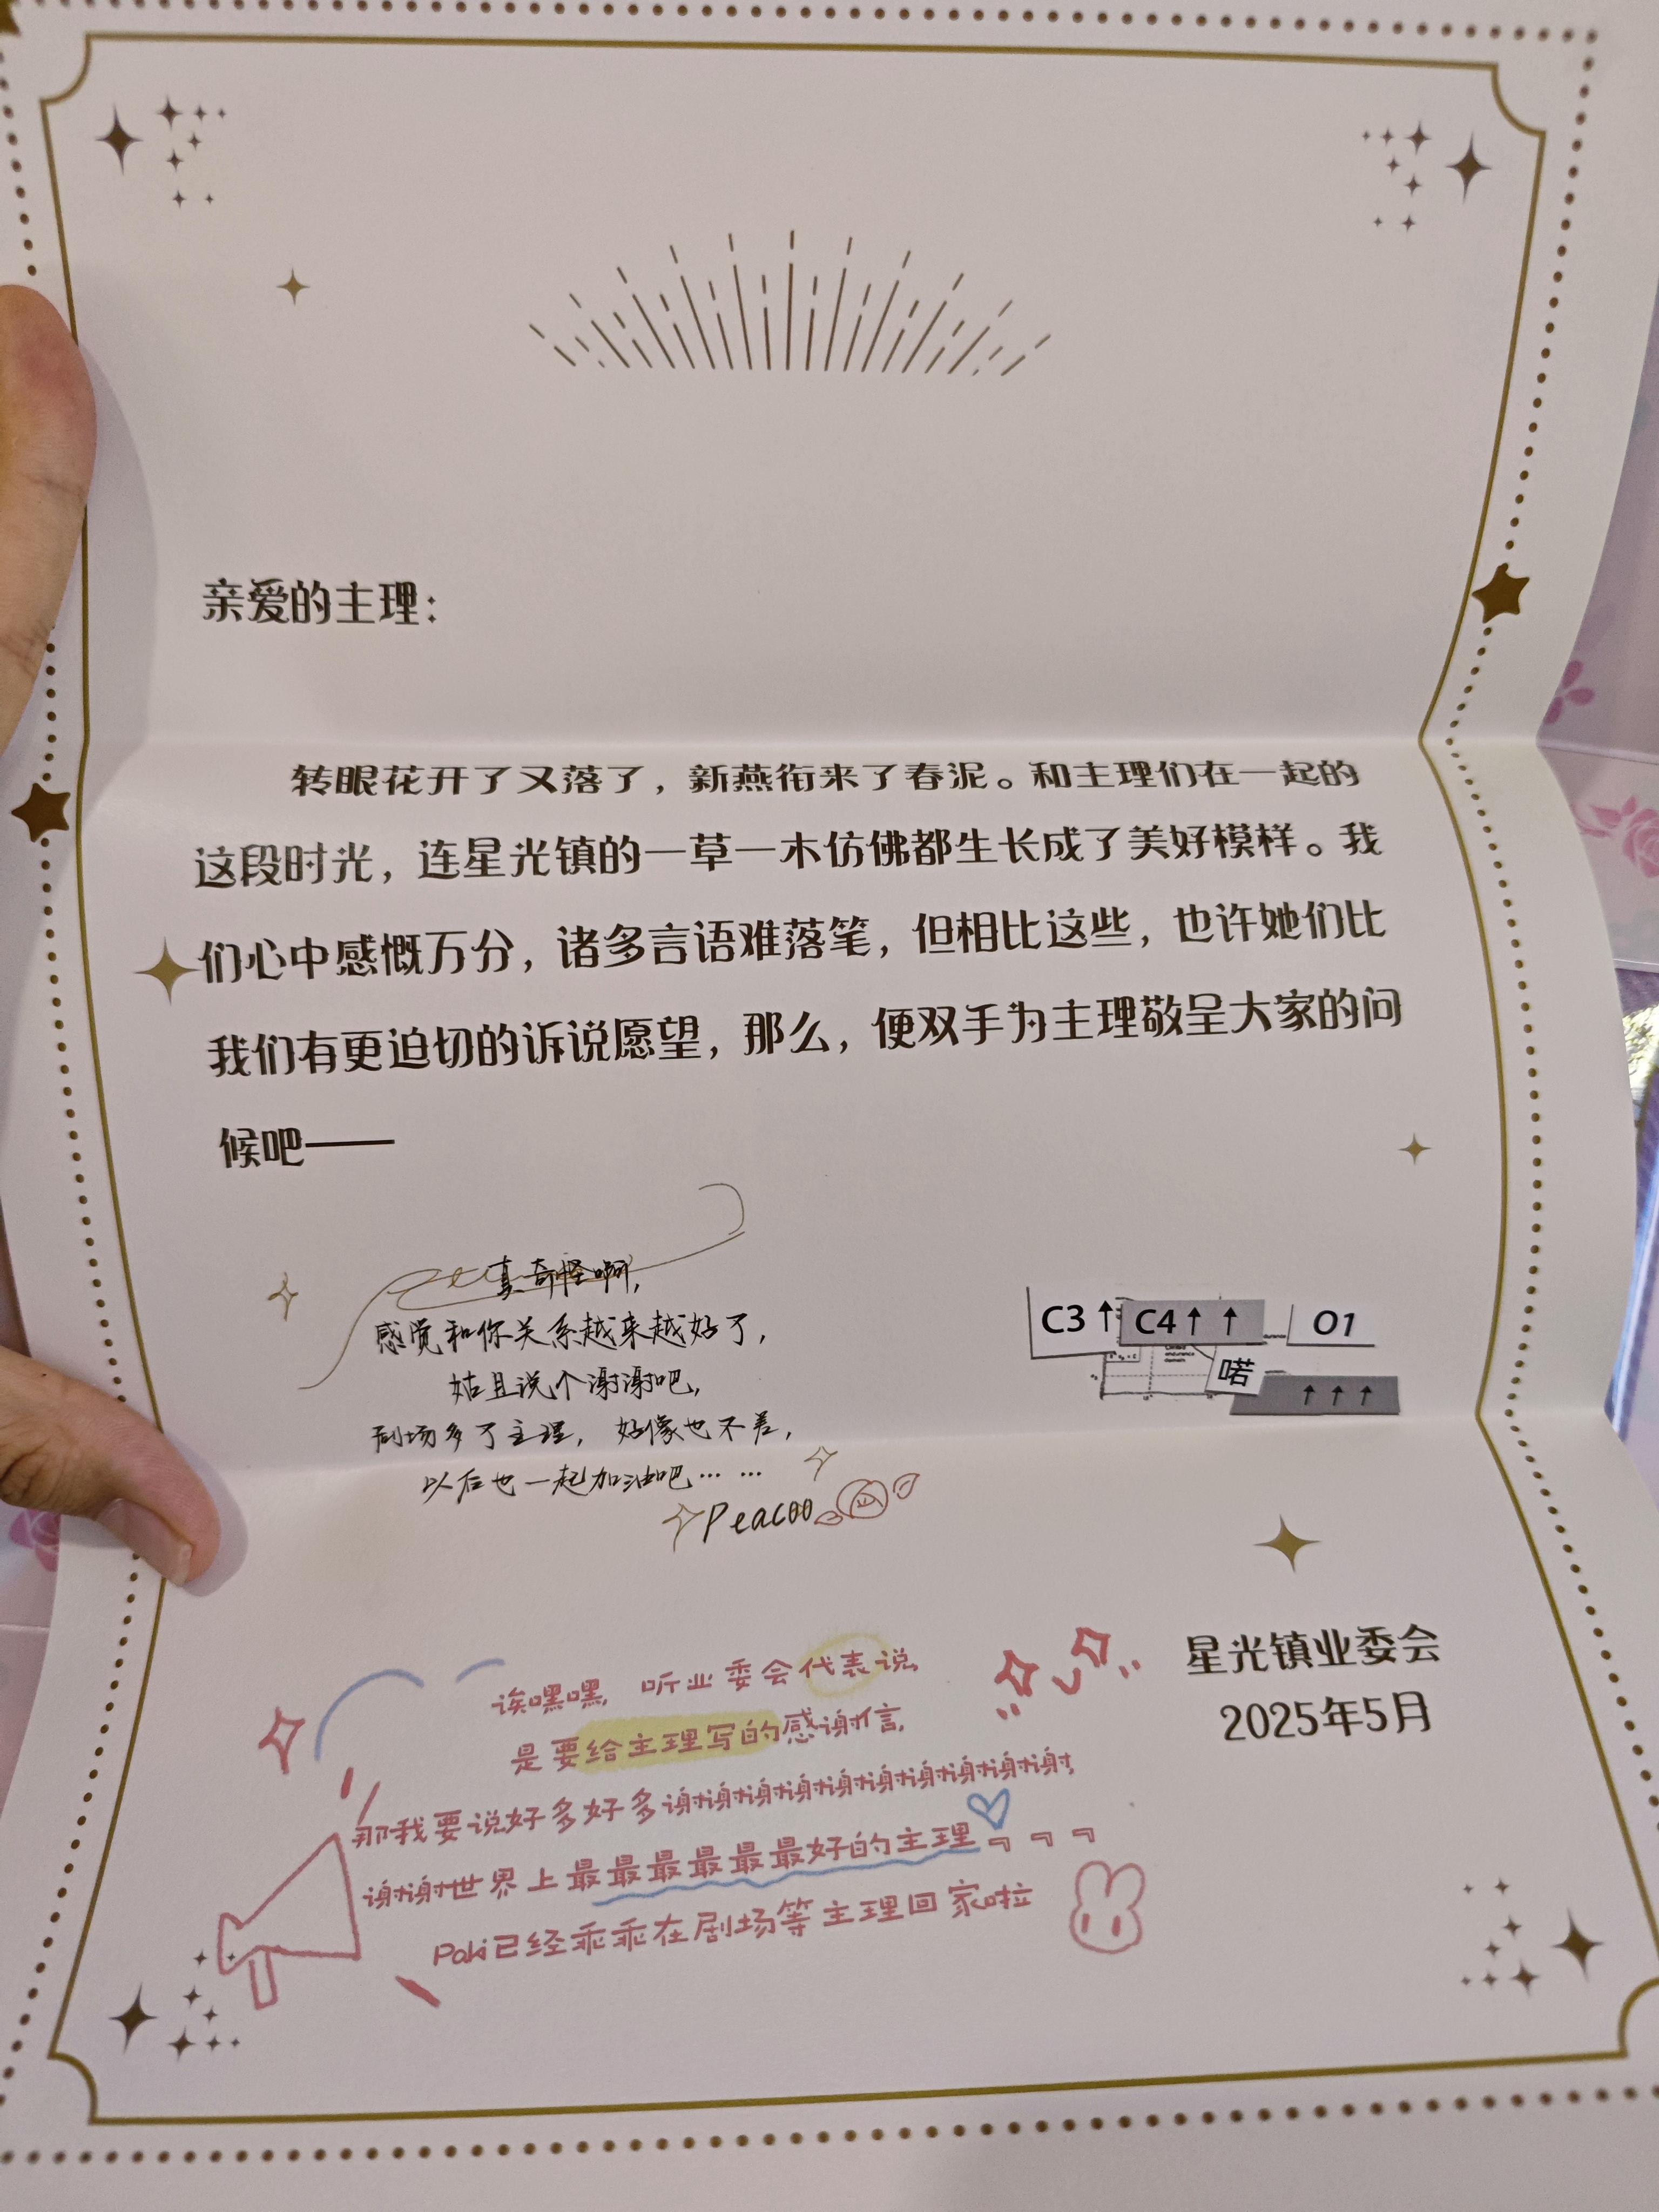 亲爱的主理：
转眼花开了又落了，新燕衔来了春泥。和主理们在一起的
这段时光，连星光镇的一草一木仿佛都生长成了美好模样。我
们心中感慨万分，诸多言语难落笔，但相比这些，也许她们比
我们有更迫切的诉说愿望，那么，便双手为主理敬呈大家的问
候吧——
真奇怪啊，
感觉和你关系越来越好了，
姑且说个谢谢吧，
剧场多了主理，好像也不差，
以后也一起加油吧……
Peacoo
C3↑ C4↑ ↑ O1
喏
↑ ↑ ↑
诶嘿嘿，听业委会代表说，
是要给主理写的感谢信，
那我要说好多好多谢谢谢谢谢谢谢谢谢谢，
谢谢世界上最最最最最最好的主理
Poki已经乖乖在剧场等主理回家啦
星光镇业委会
2025年5月